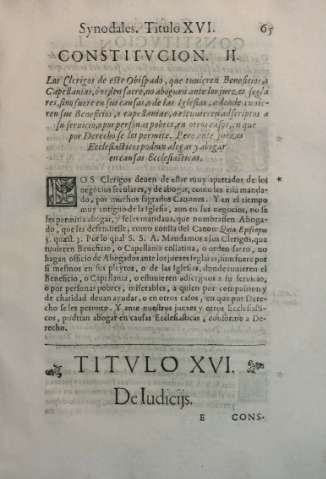 Synodales. Titulo XVI. 65
CONSTITVCION. II.
Los Clerigos de este Obispado, que tuvieren Beneficios, o
Capellanias, o orden sacro, no aboguen ante los juezes segla
res, sino fuere en sus causas, o de las Iglesias, a donde tuvie-
ren sus Beneficios, y capellanias, o estuvieren adscriptos a
su servicio, o por personas pobres, o en otros casos, en que
por Derecho se les permite. Pero ante juezes
Ecclesiasticos podran alegar y abogar
en causas Ecclesiasticas.
LOS Clerigos deven de estar muy apartados de los
negocios seculares, y de abogar, como les està manda-
do, por muchos sagrados Canones. Y en el tiempo
muy antiguo de la Iglesia, aun en sus negocios, no se
les permitia abogar, y se les mandaua, que nombrassen Aboga-
do, que les defendiesse, como consta del Canon: Quia Episcopus
5. quæst. 3. Por lo qual S. S. A. Mandamos a los Clerigos, que
tuvieren Beneficio, o Capellania collatiua, o orden sacro, no
hagan officio de Abogados ante los juezes seglares, sino fuere por
si mesmos en sus pleytos, o de las Iglesias, donde tuvieren el
Beneficio, o Capellania, o estuvieren adscriptos a su servicio,
o por personas pobres, miserables, a quien por compassion y
de charidad devan ayudar, o en otros casos, en que por Dere-
cho se les permite. Y ante nuestros juezes y otros Ecclesiasti-
cos, podran abogar en causas Ecclesiasticas, conforme a De-
recho.
TITVLO XVI.
De Iudicijs.
E CONS-